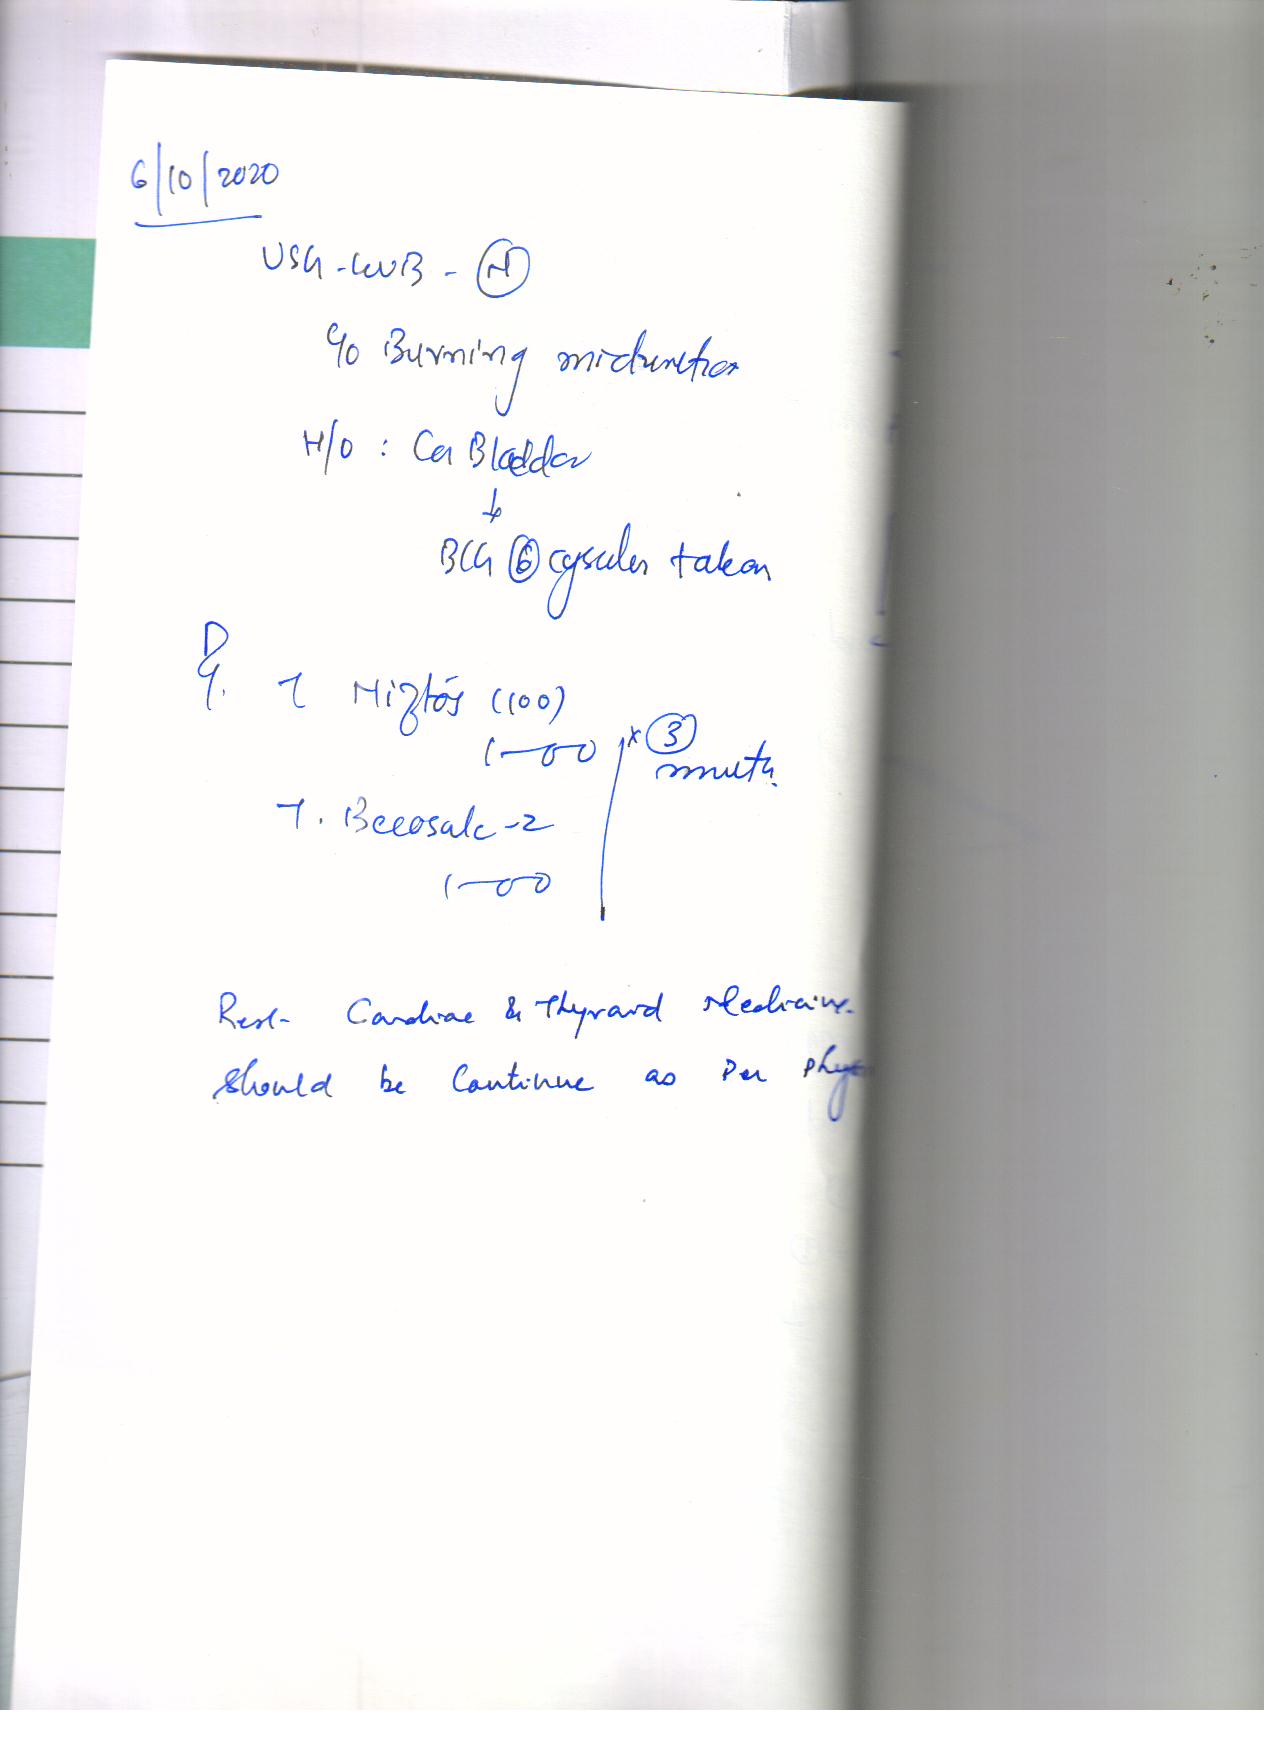 6/10/2020
USG-KUB - N
c/o Burning micturition
H/O : Ca Bladder
↓
BCG 6 cysules taken
Rx. T Niftas (100)
1-0-0 x 3
month
T. Becosule-Z
1-0-0
Rest- Cardiac & Thyroid Medicine.
should be Continue as Per